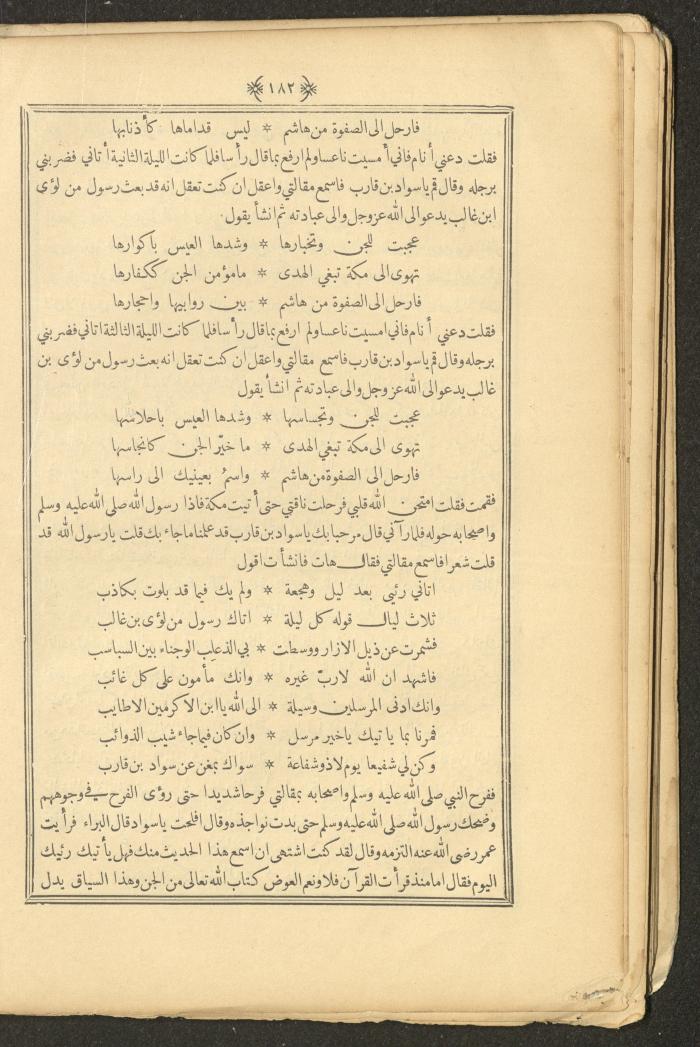 ١٨٢
فارحل الى الصفوة من هاشم * ليس قداماها كأذنابها
فقلت دعني أنام فاني أمسيت ناعسا ولم ارفع بما قال رأسا فلما كانت الليلة الثانية أتاني فضربني
برجله وقال قم يا سواد بن قارب فاسمع مقالتي واعقل ان كنت تعقل انه قد بعث رسول من لؤى
ابن غالب يدعو الى الله عز وجل والى عبادته ثم انشأ يقول
عجبت للجن وتخبارها * وشدها العيس باكوارها
تهوى الى مكة تبغي الهدى * مامؤمن الجن ككفارها
فارحل الى الصفوة من هاشم * بين روابيها واحجارها
فقلت دعني أنام فاني امسيت ناعسا ولم ارفع بما قال رأسا فلما كانت الليلة الثالثة اتاني فضربني
برجله وقال قم يا سواد بن قارب فاسمع مقالتي واعقل ان كنت تعقل انه بعث رسول من لؤى بن
غالب يدعو الى الله عز وجل والى عبادته ثم انشأ يقول
عجبت للجن وتجساسها * وشدها العيس باحلاسها
تهوى الى مكة تبغي الهدى * ما خيّر الجن كانجاسها
فارحل الى الصفوة من هاشم * واسمُ بعينيك الى راسها
فقمت فقلت امتحن الله قلبي فرحلت ناقتي حتى أتيت مكة فاذا رسول الله صلى الله عليه وسلم
واصحابه حوله فلما رآني قال مرحبا بك ياسواد بن قارب قد علمنا ماجاء بك قلت يارسول الله قد
قلت شعرا فاسمع مقالتي فقال هات فانشأت اقول
اتاني رئيى بعد ليل وهجعة * ولم يك فيما قد بلوت بكاذب
ثلاث ليال قوله كل ليلة * اتاك رسول من لؤى بن غالب
فشمرت عن ذيل الازار ووسطت * بي الذعلب الوجناء بين السباسب
فاشهد ان الله لاربّ غيره * وانك مأمون على كل غائب
وانك ادنى المرسلين وسيلة * الى الله ياابن الاكرمين الاطايب
فمرنا بما ياتيك ياخير مرسل * وان كان فيما جاء شيب الذوائب
وكن لي شفيعا يوم لاذو شفاعة * سواك بمغن عن سواد بن قارب
ففرح النبي صلى الله عليه وسلم واصحابه بمقالتي فرحا شديدا حتى رؤى الفرح في وجوههم
وضحك رسول الله صلى الله عليه وسلم حتى بدت نواجذه وقال افلحت ياسواد قال البراء فرأيت
عمر رضى الله عنه التزمه وقال لقد كنت اشتهى ان اسمع هذا الحديث منك فهل يأتيك رئيك
اليوم فقال اما منذ قرأت القرآن فلا ونعم العوض كتاب الله تعالى من الجن وهذا السياق يدل